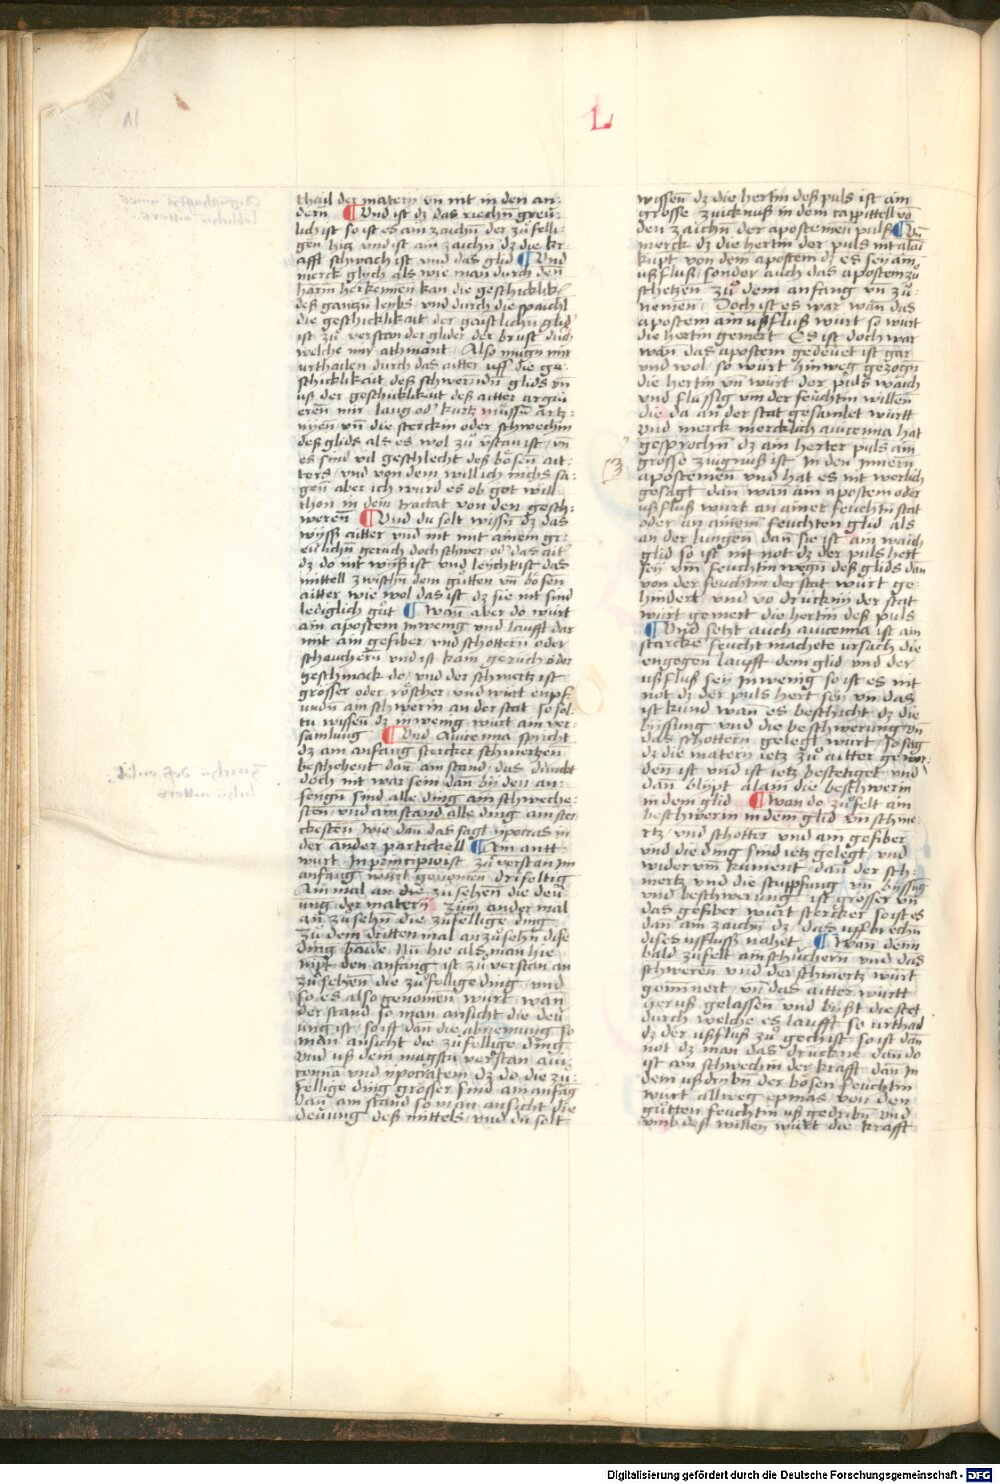 L
thail der matery vn̄ nit in den an-
dern ¶ Vnd ist dz das riechn̄ greu-
lich ist so ist es ain zaichn̄ der zufelli-
gen hitz vnd ist ain zaichn̄ dz die kr-
afft schwach ist vnd das glid ¶ Vnd
merck glych als wie man durch den
harm herkennen kan die geschicklik
deß gantzn̄ leybs vnd durch die spaichl
die geschicklikait der gaistlichn̄ glid
ist zu verstan der glider der brust durch
welche mir athmant Also mugn̄ mir
urthailen durch das aitter uff die ge-
schicklikait deß schwerndn̄ glids vn̄
uß der geschicklikait deß aitter argu-
eren mir lang od' kurtz mussn̄ artz-
nyen vn̄ die sterckin oder schwechin
deß glids als es wol zu v̄stan ist vn̄
es sind vil geschlecht deß bösen ait-
ters vnd von dem will ich nichs sa-
gen aber ich wurd es ob got will
thon in dem tractat von den gesch-
weren ¶ Vnd du solt wissn̄ dz das
wyß aitter vnd nit mit ainem gr-
eulichn̄ geruch doch schwer od' das ait
dz do nit wyß ist vnd leychtist das
mittell zwischn̄ dem gutten vn̄ bösen
aitter wie wol das ist dz sie nit sind
lediglich gut ¶ Wan̄ aber do wurt
ain apostem inwenig vnd laufft dar
mit ain gefiber vnd schottern oder
schauchern vnd ist kain geruch oder
geschmack do vnd der schmertz ist
grösser oder röscher vnd wurt enpf-
undn̄ ain schwerin an der stat so sol-
tu wissen dz inwenig wurt ain ver-
samlung ¶ Vnd Auicenna spricht
dz am anfang stercker schmertzen
beschehent dan̄ am stand das dunckt
doch nit war sein dan̄ by den an-
fengn̄ sind alle ding am schweche-
sten vnd am stand alle ding am ster
ckesten wie dan̄ das sagt ypocras in
der ander partickell ¶ Ain antt-
wurt In principio ist zu verstan im
anfang wurt genomen drifeltig
Ainmal an die zu sehen die deu-
ung der matery zum ander mal
an zu sehn̄ die zufellige ding
zu dem dritten mal an zu sehn̄ dise
ding baide Nu hie als man hie
nympt den anfang ist zu verstan an
zu sehen die zufellige ding vnd
so es also genomen wurt wan
der stand so man ansicht die deu
ung ist so ist dan̄ die abnemung so
man ansicht die zufellige ding
vnd uß dem mugstu verstan aui-
cenna vnd ypocratem dz do die zu-
fellige ding grösser sind am anfāg
dan̄ am stand so man ansicht die
deuung deß mittels vnd du solt
wissen dz die hertin deß puls ist ain
grosse zuicknuß in dem cappittell vō
den zaichn̄ der apostemen puls ¶ Vn̄
merck dz die hertin der puls nit alai
kupt von dem apostem dz es sey ain
ußfluß sonder auch das apostem zu
schetzen zu dem anfang vn̄ zu-
nemen Doch ist es war wan̄ das
apostem ain ußfluß wurt so wurt
die hertin gemert Es ist doch war
wan̄ das apostem gedeuet ist gar
vnd wol so wurt hinweg gezogn̄
die hertin vn̄ wurt der puls waich
vnd flussig vm der feuchtin willen
die da an der stat gesamlet wurtt
Vnd merck mercklich auicenna hat
gesprochn̄ dz ain herter puls ain
grosse zuignuß ist in den innern
apostemen vnd hat es nit werlich
gesagt dan̄ wan ain apostem oder
ußfluß wurt an ainer feuchtn̄ stat
oder an ainem feuchten glid als
an der lungen dan̄ sie ist ain waich
glid so ist nit not dz der puls hert
sey vm̄ feuchtin wegn̄ deß glids dan̄
von der feuchtin der stat wurt ge-
hindert vnd vo druckin der stat
wurt gemert die hertin deß puls
¶ Vnd setzt auch auicenna ist ain
starcke feucht machete ursach die
engegen laufft dem glid vnd der
ußfluß sey inwenig so ist es nit
not dz der puls hert sey vn̄ das
ist kund wan es beschicht dz die
byssung vnd die beschwerung vn̄
das schottern gelegt wurt so sag
dz die matery ietz zu aitter gewor-
den ist vnd ist ietz bestetiget vnd
dan̄ blypt alain die beschwerin
in dem glid ¶ Wan do zufelt ain
beschwerin in dem glid vn̄ schme-
rtz vnd schotter vnd ain gefiber
vnd die ding sind ietz gelegt vnd
widerum̄ kument dan̄ der sch-
mertz vnd die stupffung vn̄ byssug
vnd beschwerung ist grösser vn̄
das gefiber wurt stercker so ist es
dan̄ ain zaichn̄ dz das uffbrechn̄
dises ußfluß nahet ¶ Wan denn
bald zufelt ain schuchern vnd das
schweren vnd der schmertz wurt
geminert vn̄ das aitter wurtt
heruß gelassen vnd byßt die stet
durch welche es laufft so urthail
dz der ußfluß zu gech ist so ist dan̄
not dz man das druckne dan̄ do
ist ain schwechin der krafft dan̄ in
dem ußtribn̄ der bösen feuchtin
wurt allweg epmas von den
gutten feuchtin uß gedribn̄ vnd
vmb deß willen wurt die krafft
Digitalisierung gefördert durch die Deutsche Forschungsgemeinschaft - DFG